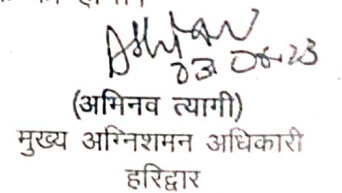 03 06-23
(अभिनव त्यागी)
मुख्य अग्निशमन अधिकारी
हरिद्वार